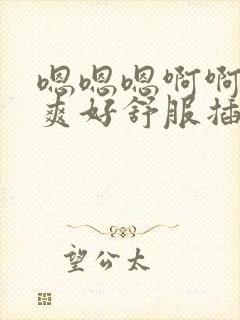 嗯嗯嗯啊啊
爽好舒服插
望公太